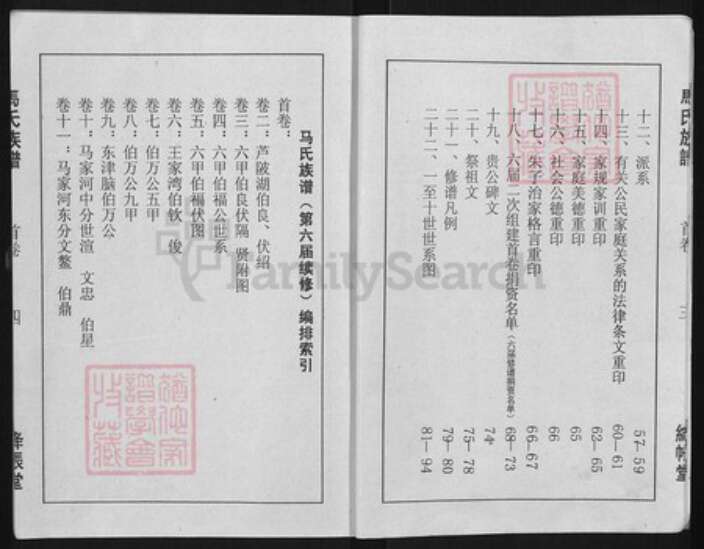 馬氏族譜
首卷
三
絳帳堂
十二、派系 57—59
十三、有关公民家庭关系的法律条文重印 60—61
十四、家规家训重印 62—65
十五、家庭美德重印 65
十六、社会公德重印 66
十七、朱子治家格言重印 66—67
十八、六届二次组建首卷捐资名单(六届修谱捐资名单) 68—73
十九、贵公碑文 74
二十、祭祖文 75—78
二十一、修谱凡例 79—80
二十二、一至十世世系图 81—94
马氏族谱(第六届续修)编排索引
首卷:
卷二:芦陂湖伯良、伏绍
卷三:六甲伯良伏隔 贤附图
卷四:六甲伯福公世系
卷五:六甲伯福伏图
卷六:王家湾伯钦 俊
卷七:伯万公五甲
卷八:伯万公九甲
卷九:东津脑伯万公
卷十:马家河中分世渲 文忠 伯星
卷十一:马家河东分文鳌 伯鼎
馬氏族譜
首卷
四
絳帳堂
FamilySearch